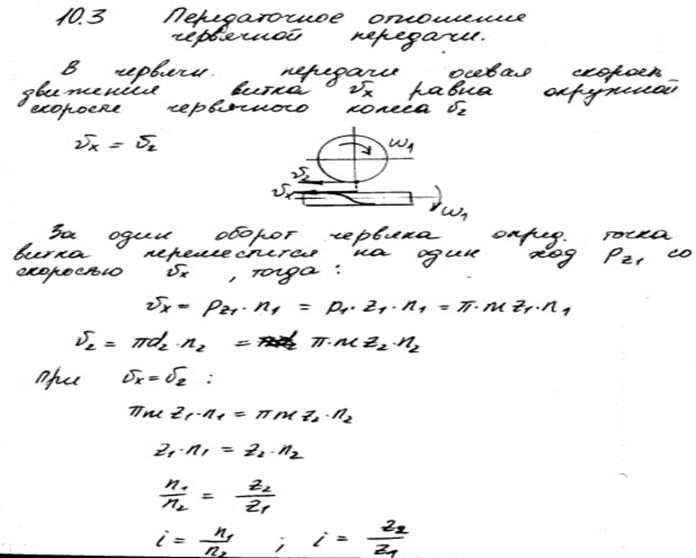 10.3 Передаточное отношение
червячной передачи.
В червячн. передачи осевая скорость
движения витка υx равна окружной
скорости червячного колеса υ2
υx = υ2
ω1
υ2
υx
ω1
За один оборот червяка опред. точка
витка переместится на один ход pz1 со
скоростью υx, тогда:
υx = pz1·n1 = p1·z1·n1 = π·m z1·n1
υ2 = πd2·n2 = π·m z2·n2
при υx = υ2 :
π m z1·n1 = π m z2·n2
z1·n1 = z2·n2
n1/n2 = z2/z1
i = n1/n2 ; i = z2/z1